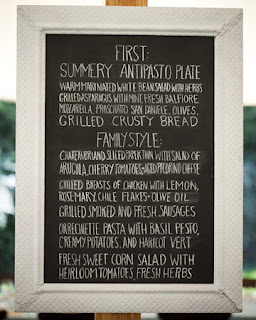 FIRST:
SUMMERY ANTIPASTO PLATE
WARM MARINATED WHITE BEAN SALAD WITH HERBS
GRILLED ASPARAGUS WITH MINT, FRESH BALFIORE
MOZZARELLA, PROSCIUTTO SAN DANIELE, OLIVES,
GRILLED CRUSTY BREAD
FAMILY STYLE:
CHATERUBRIAND SLICED PAPER THIN WITH SALAD OF
ARUGULA, CHERRY TOMATOES, AGED PECORINO CHEESE
GRILLED BREASTS OF CHICKEN WITH LEMON,
ROSEMARY, CHILE FLAKES + OLIVE OIL
GRILLED SMOKED AND FRESH SAUSAGES
ORRECHIETTE PASTA WITH BASIL PESTO,
CREAMY POTATOES, AND HARICOT VERT
FRESH SWEET CORN SALAD WITH
HEIRLOOM TOMATOES, FRESH HERBS